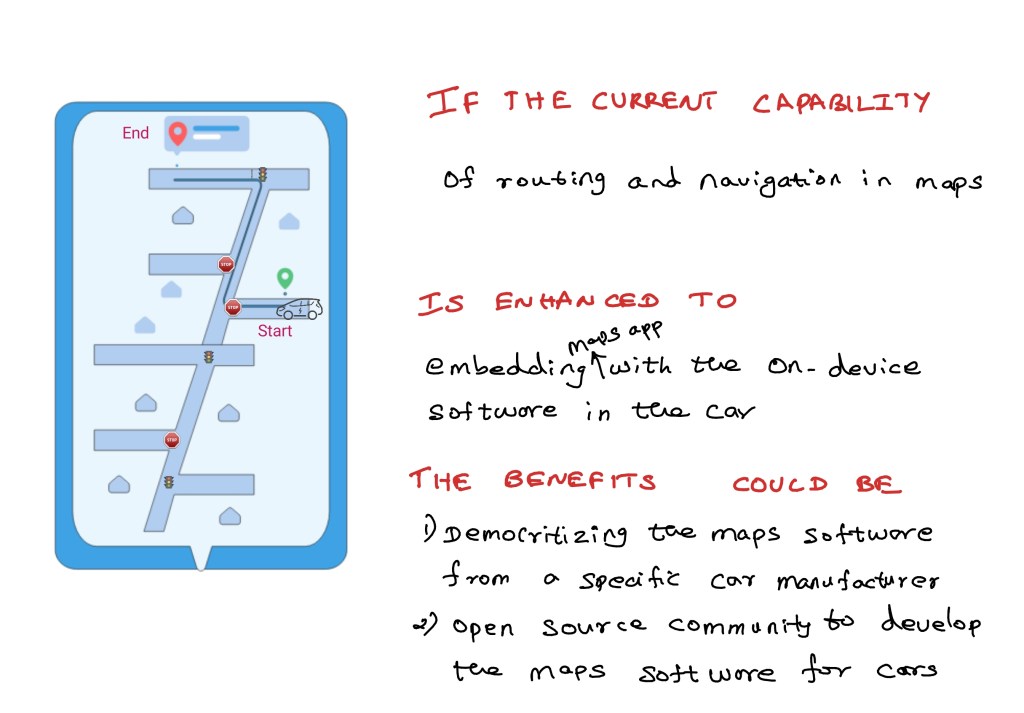 IF THE CURRENT CAPABILITY
End
Of routing and navigation in maps
STOP
IS ENHANCED TO
STOP
Start
maps app
embedding with the on-device
software in the car
STOP
THE BENEFITS COULD BE
1) Democritizing the maps software
from a specific car manufacturer
2) Open source community to develop
the maps software for cars